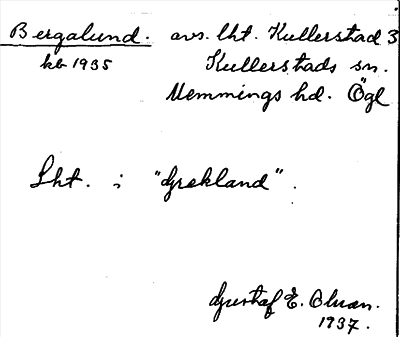 Bergalund. avs. lht. Kullerstad 3
kb 1935 Kullerstads sn.
Memmings hd. Ögl
Lht. i "Grekland".
Gustaf E. Olsson.
1937.